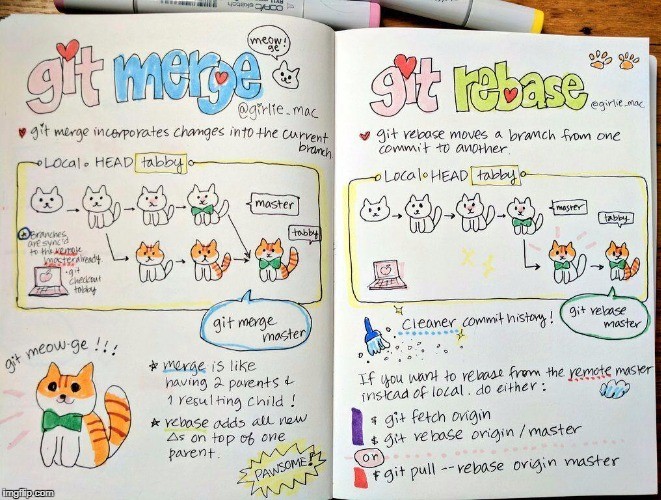 copic sketch
meow!
ge
git merge
@girlie_mac
git merge incorporates changes into the current
branch
Local HEAD tabby
master
tabby
Branches
are sync'd
to the remote
master already
git
checkout
tabby
git merge
master
git meow-ge !!!
merge is like
having 2 parents &
1 resulting child !
rebase adds all new
Δs on top of one
parent.
PAWSOME!
git rebase
@girlie_mac
git rebase moves a branch from one
commit to another.
Local HEAD tabby
master
tabby
git rebase
master
Cleaner commit history!
If you want to rebase from the remote master
instead of local, do either:
$ git fetch origin
$ git rebase origin/master
or
$ git pull --rebase origin master
imgflip.com